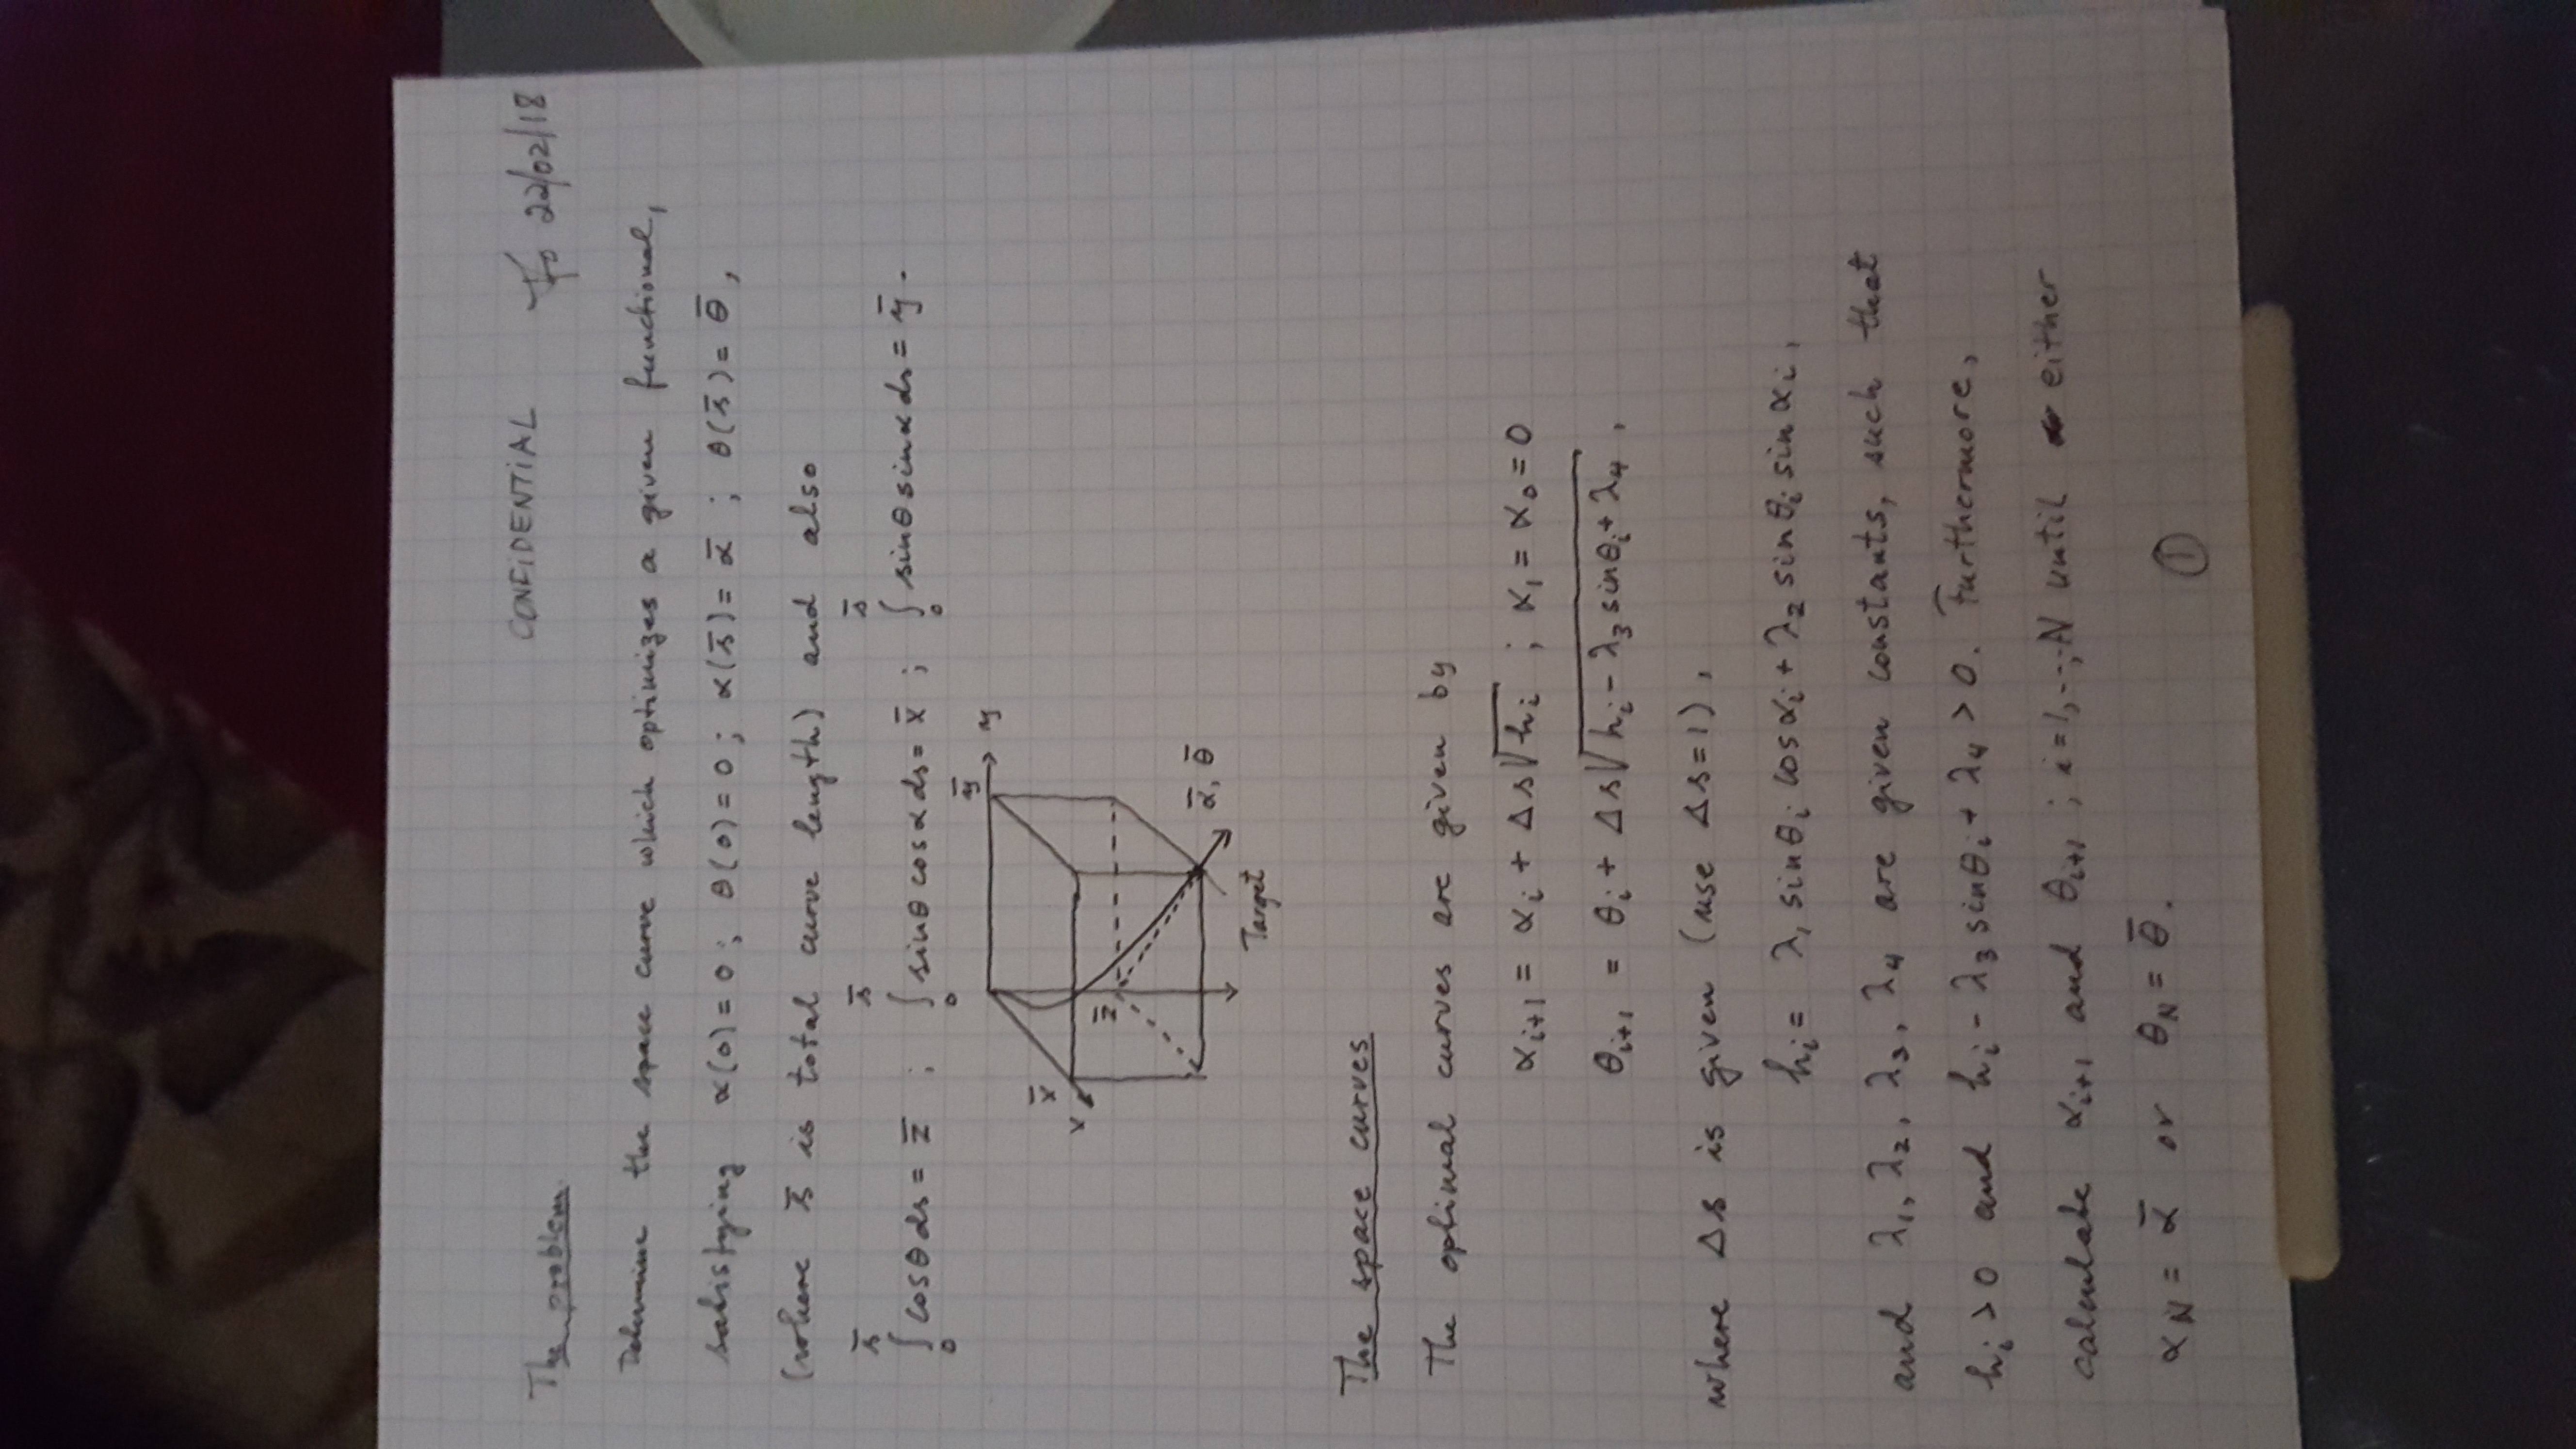 CONFIDENTIAL 22/02/18
The problem
Determine the space curve which optimizes a given functional,
satisfying α(0) = 0 ; θ(0) = 0 ; α(s̄) = ᾱ ; θ(s̄) = θ̄ ,
(where s̄ is total curve length) and also
∫₀^s̄ cosθ ds = z̄ ; ∫₀^s̄ sinθ cosα ds = x̄ ; ∫₀^s̄ sinθ sinα ds = ȳ .
ȳ
y
x̄
x
z̄
ᾱ, θ̄
Target
The space curves
The optimal curves are given by
α_{i+1} = α_i + Δs√(h_i) ; α_1 = α_0 = 0
θ_{i+1} = θ_i + Δs√(h_i - λ_3 sinθ_i + λ_4) ,
where Δs is given (use Δs=1) ,
h_i = λ_1 sinθ_i cosα_i + λ_2 sinθ_i sin α_i ,
and λ_1, λ_2, λ_3, λ_4 are given constants, such that
h_i > 0 and h_i - λ_3 sinθ_i + λ_4 > 0. Furthermore,
calculate α_{i+1} and θ_{i+1} ; i=1,...,N until either
α_N = ᾱ or θ_N = θ̄ .
1